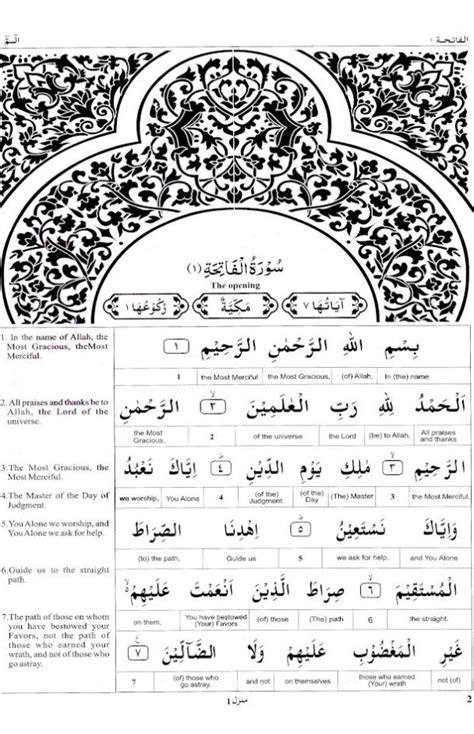 الفاتحة ١
الٓمّٓ
سُوْرَةُ الْفَاتِحَةِ (١)
The opening
اٰيَاتُهَا ٧
مَكِّيَّةٌ
رُكُوْعُهَا ١
1. In the name of Allah, the
Most Gracious, theMost
Merciful.
بِسْمِ اللهِ الرَّحْمٰنِ الرَّحِيْمِ ١
In (the) name
(of) Allah,
the Most Gracious,
the Most Merciful.
1
2. All praises and thanks be to
Allah, the Lord of the
universe.
اَلْحَمْدُ لِلهِ رَبِّ الْعٰلَمِيْنَ ٢ الرَّحْمٰنِ
All praises
and thanks
(be) to Allah,
the Lord
of the universe
2
the Most
Gracious,
3.The Most Gracious, the
Most Merciful.
4.The Master of the Day of
Judgment.
الرَّحِيْمِ ٣ مٰلِكِ يَوْمِ الدِّيْنِ ٤ اِيَّاكَ نَعْبُدُ
the Most Merciful,
3
(The) Master
(of the)
Day
(of the)
Judgment.
4
You Alone
we worship,
5.You Alone we worship, and
You Alone we ask for help.
وَاِيَّاكَ نَسْتَعِيْنُ ٥ اِهْدِنَا الصِّرَاطَ
and You Alone
we ask for help.
5
Guide us
(to) the path,
6.Guide us to the straight
path.
الْمُسْتَقِيْمَ ٦ صِرَاطَ الَّذِيْنَ اَنْعَمْتَ عَلَيْهِمْ
the straight.
6
(The) path
(of) those
You have bestowed
(Your) Favors
on them,
7.The path of those on whom
you have bestowed your
Favors, not the path of
those who earned your
wrath, and not of those who
go astray.
غَيْرِ الْمَغْضُوْبِ عَلَيْهِمْ وَلَا الضَّآلِّيْنَ ٧
not (of)
those who earned
(Your) wrath
on themselves
and not
(of) those who
go astray.
7
منزل ١
2